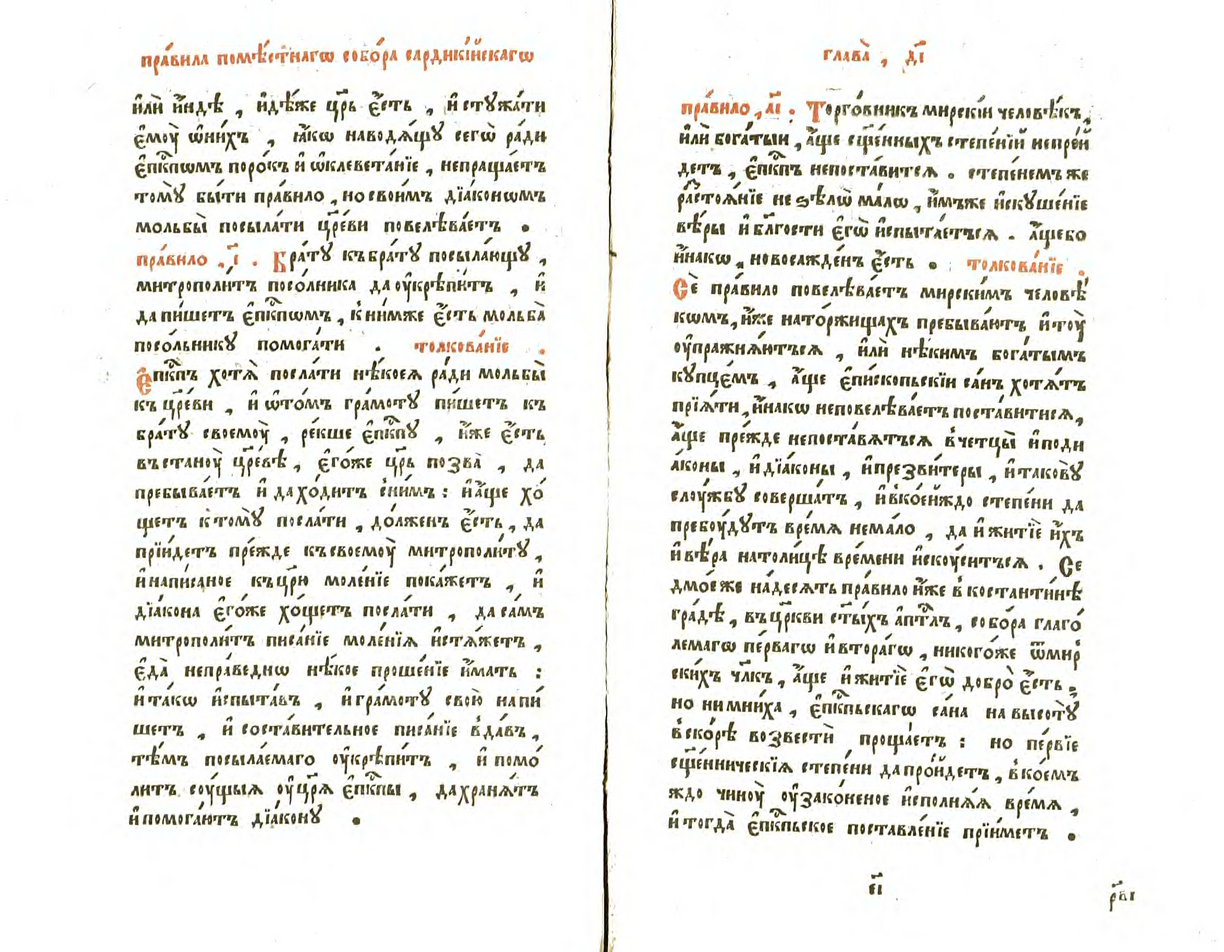 пра́вила помѣ́стнагѡ собо́ра сардикі́йскагѡ
и҆лѝ и҆́ндѣ , и҆дѣ́же цр҃ь є҆́сть , и҆ стꙋжа́ти
є҆моу̀ ѡ҆ни́хъ , ꙗ҆́кѡ наводѧ́щꙋ сегѡ̀ ра́ди
є҆пⷭ҇кпѡмъ поро́къ и҆ ѡ҆клевета́нїе , непраща́етъ
томꙋ̀ бы́ти пра́вило , но свои́мъ дїа́кономъ
мольбы̀ посыла́ти цр҃е́ви повелѣва́етъ .
пра́вило , і҃ . Бра́тꙋ къ бра́тꙋ посыла́ющꙋ ,
митрополи́тъ посо́лника да оу҆крѣпи́тъ , и҆
да пи́шетъ є҆пⷭ҇кпѡмъ , к ни́мже є҆́сть мольба̀
посо́льникꙋ помога́ти . толкова́нїе .
Є҆пⷭ҇кпъ хотѧ̀ посла́ти нѣ́коеѧ ра́ди мольбы̀
къ цр҃е́ви , и҆ ѡ҆то́мъ гра́мотꙋ пи́шетъ къ
бра́тꙋ своемоу̀ , ре́кше є҆пⷭ҇кпꙋ , и҆́же є҆́сть
въ станоу̀ цр҃е́вѣ , є҆го́же цр҃ь позва̀ , да
пребыва́етъ и҆ да хо́дитъ с ни́мъ : и҆ а҆́ще хо́
щетъ к томꙋ̀ посла́ти , до́лженъ є҆́сть , да
прїи́детъ пре́жде къ своемоу̀ митрополи́тꙋ ,
и҆ написаное къ цр҃ю̀ моле́нїе пока́жетъ , и҆
дїа́кона є҆го́же хо́щетъ посла́ти , да са́мъ
митрополи́тъ писа́нїе моле́нїѧ и҆стѧ́жетъ ,
є҆да̀ непра́веднѡ нѣ́кое проше́нїе и҆́мать :
и҆ та́кѡ и҆спыта́въ , и҆ гра́мотꙋ свою̀ напи́
шетъ , и҆ соста́вительное писа́нїе вда́въ ,
тѣ́мъ посыла́емаго оу҆крѣпи́тъ , и҆ помо́
литъ соу́щыѧ оу҆ цр҃ѧ̀ є҆пⷭ҇кпы , да хранѧ́тъ
и҆ помога́ютъ дїа́конꙋ .
глава̀ , д҃і
пра́вило , а҃і . Торго́вникъ мирскі́и человѣ́къ ,
и҆лѝ бога́тыи , а҆́ще сщ҃е́нныхъ степе́нїи непре́и
детъ , є҆пⷭ҇кпъ непоста́витсѧ . степе́немъ же
разстоѧ́нїе не ѕѣлѡ̀ ма́лѡ , и҆́мъже и҆скꙋше́нїе
вѣ́ры и҆ бл҃гости є҆гѡ̀ и҆спыта́етъсѧ . а҆́ще бо
и҆на́кѡ , новосажде́нъ є҆́сть . толкова́нїе .
Сѐ пра́вило повелѣва́етъ мирски́мъ человѣ́
кѡмъ , и҆́же на то́ржищахъ пребыва́ютъ и҆ тоу̀
оу҆пражнѧ́ютъсѧ , и҆лѝ нѣ́кимъ бога́тымъ
кꙋпце́мъ , а҆́ще є҆пи́скопьскїи са́нъ хотѧ́тъ
прїѧ́ти , и҆на́кѡ неповелѣва́етъ поста́витисѧ ,
а҆́ще пре́жде непоста́вѧтъсѧ в четцы̀ и҆ поди
а́коны , и҆ дїа́коны , и҆ презви́теры , и҆ такову̀
слоу́жбꙋ соверша́тъ , и҆ в ко́еиждо степе́ни да
пребоу́дꙋтъ вре́мѧ нема́ло , да и҆ житїѐ и҆́хъ
и҆ вѣ́ра на толи́цѣ вре́мени и҆скоу́ситъсѧ . Се
дмо́е же на́десѧть пра́вило и҆́же в костѧнти́нѣ
гра́дѣ , въ цр҃кви ст҃ы́хъ а҆пⷭ҇тлъ , собо́ра глаго́
лемагѡ пе́рвагѡ и҆ втора́гѡ , никого́же ѿ мир
ски́хъ чл҃къ , а҆́ще и҆ житїѐ є҆гѡ̀ добро̀ є҆́сть ,
но ни мни́ха , є҆пⷭ҇кпьскагѡ са́на на высотꙋ̀
вско́рѣ возвестѝ проща́етъ : но пе́рвїе
сщ҃е́нническїѧ степе́ни да про́идетъ , в ко́емъ
ждо чиноу̀ оу҆зако́неное и҆сполнѧ́ѧ вре́мѧ ,
и҆ тогда̀ є҆пⷭ҇кпьское поставле́нїе прїи́метъ .
є҃і
рв҃і